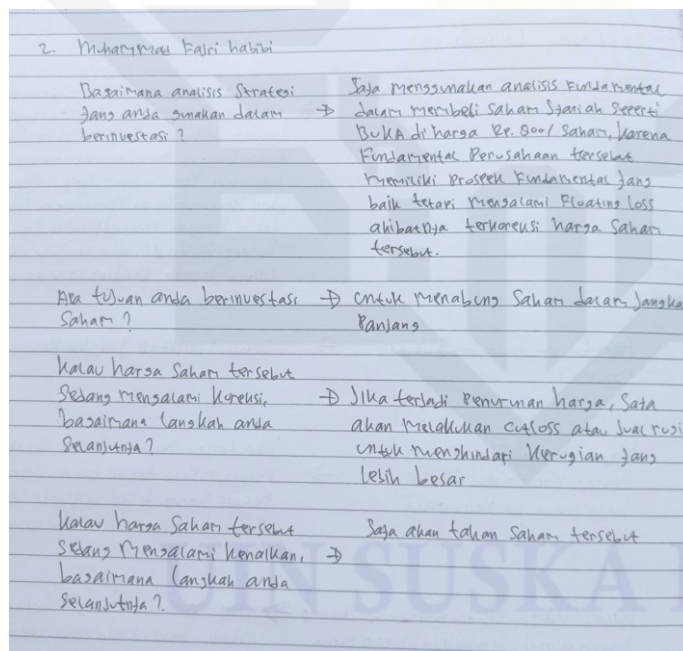 2. Muhammad Fajri habibi
Bagaimana analisis Strategi
yang anda gunakan dalam
berinvestasi ?
→ Saya menggunakan analisis Fundamental
dalam membeli saham Syariah seperti
BUKA di harga Rp. 800/ Saham, karena
Fundamental Perusahaan tersebut
memiliki Prospek Fundamental yang
baik tetapi mengalami Floating loss
akibatnya terkoreksi harga saham
tersebut.
Apa tujuan anda berinvestasi
Saham ?
→ untuk menabung Saham dalam Jangka
Panjang
kalau harga Saham tersebut
Sedang mengalami koreksi,
bagaimana langkah anda
Selanjutnya ?
→ Jika terjadi Penurunan harga, Saya
akan melakukan cutloss atau Jual rugi
untuk menghindari kerugian yang
lebih besar
kalau harga Saham tersebut
Sedang mengalami kenaikan,
bagaimana langkah anda
Selanjutnya ?.
→ Saya akan tahan Saham tersebut
UIN SUSKA